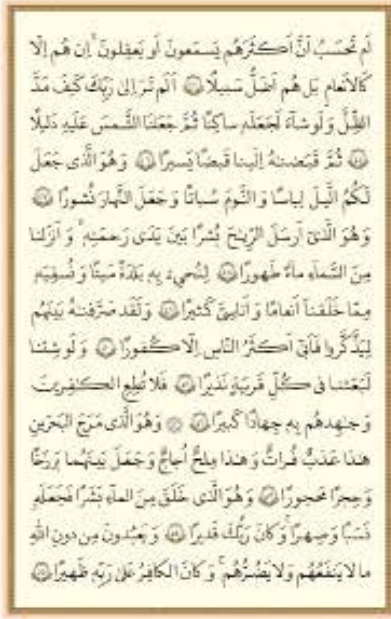 أَم تَحسَبُ أَنَّ أَكثَرَهُم يَسمَعونَ أَو يَعقِلونَ ۚ إِن هُم إِلّا
كَالأَنعامِ بَل هُم أَضَلُّ سَبيلًا ﴿٤٤﴾ أَلَم تَرَ إِلىٰ رَبِّكَ كَيفَ مَدَّ
الظِّلَّ وَلَو شاءَ لَجَعَلَهُ ساكِنًا ثُمَّ جَعَلنَا الشَّمسَ عَلَيهِ دَليلًا
﴿٤٥﴾ ثُمَّ قَبَضناهُ إِلَينا قَبضًا يَسيرًا ﴿٤٦﴾ وَهُوَ الَّذي جَعَلَ
لَكُمُ اللَّيلَ لِباسًا وَالنَّومَ سُباتًا وَجَعَلَ النَّهارَ نُشورًا ﴿٤٧﴾
وَهُوَ الَّذي أَرسَلَ الرِّياحَ بُشرًا بَينَ يَدَي رَحمَتِهِ ۚ وَأَنزَلنا
مِنَ السَّماءِ ماءً طَهورًا ﴿٤٨﴾ لِنُحيِيَ بِهِ بَلدَةً مَيتًا وَنُسقِيَهُ
مِمّا خَلَقنا أَنعامًا وَأَناسِيَّ كَثيرًا ﴿٤٩﴾ وَلَقَد صَرَّفناهُ بَينَهُم
لِيَذَّكَّروا فَأَبىٰ أَكثَرُ النّاسِ إِلّا كُفورًا ﴿٥٠﴾ وَلَو شِئنا
لَبَعَثنا في كُلِّ قَريَةٍ نَذيرًا ﴿٥١﴾ فَلا تُطِعِ الكافِرينَ
وَجاهِدهُم بِهِ جِهادًا كَبيرًا ﴿٥٢﴾ ۞ وَهُوَ الَّذي مَرَجَ البَحرَينِ
هٰذا عَذبٌ فُراتٌ وَهٰذا مِلحٌ أُجاجٌ وَجَعَلَ بَينَهُما بَرزَخًا
وَحِجرًا مَحجورًا ﴿٥٣﴾ وَهُوَ الَّذي خَلَقَ مِنَ الماءِ بَشَرًا فَجَعَلَهُ
نَسَبًا وَصِهرًا ۗ وَكانَ رَبُّكَ قَديرًا ﴿٥٤﴾ وَيَعبُدونَ مِن دونِ اللَّهِ
ما لا يَنفَعُهُم وَلا يَضُرُّهُم ۗ وَكانَ الكافِرُ عَلىٰ رَبِّهِ ظَهيرًا ﴿٥٥﴾